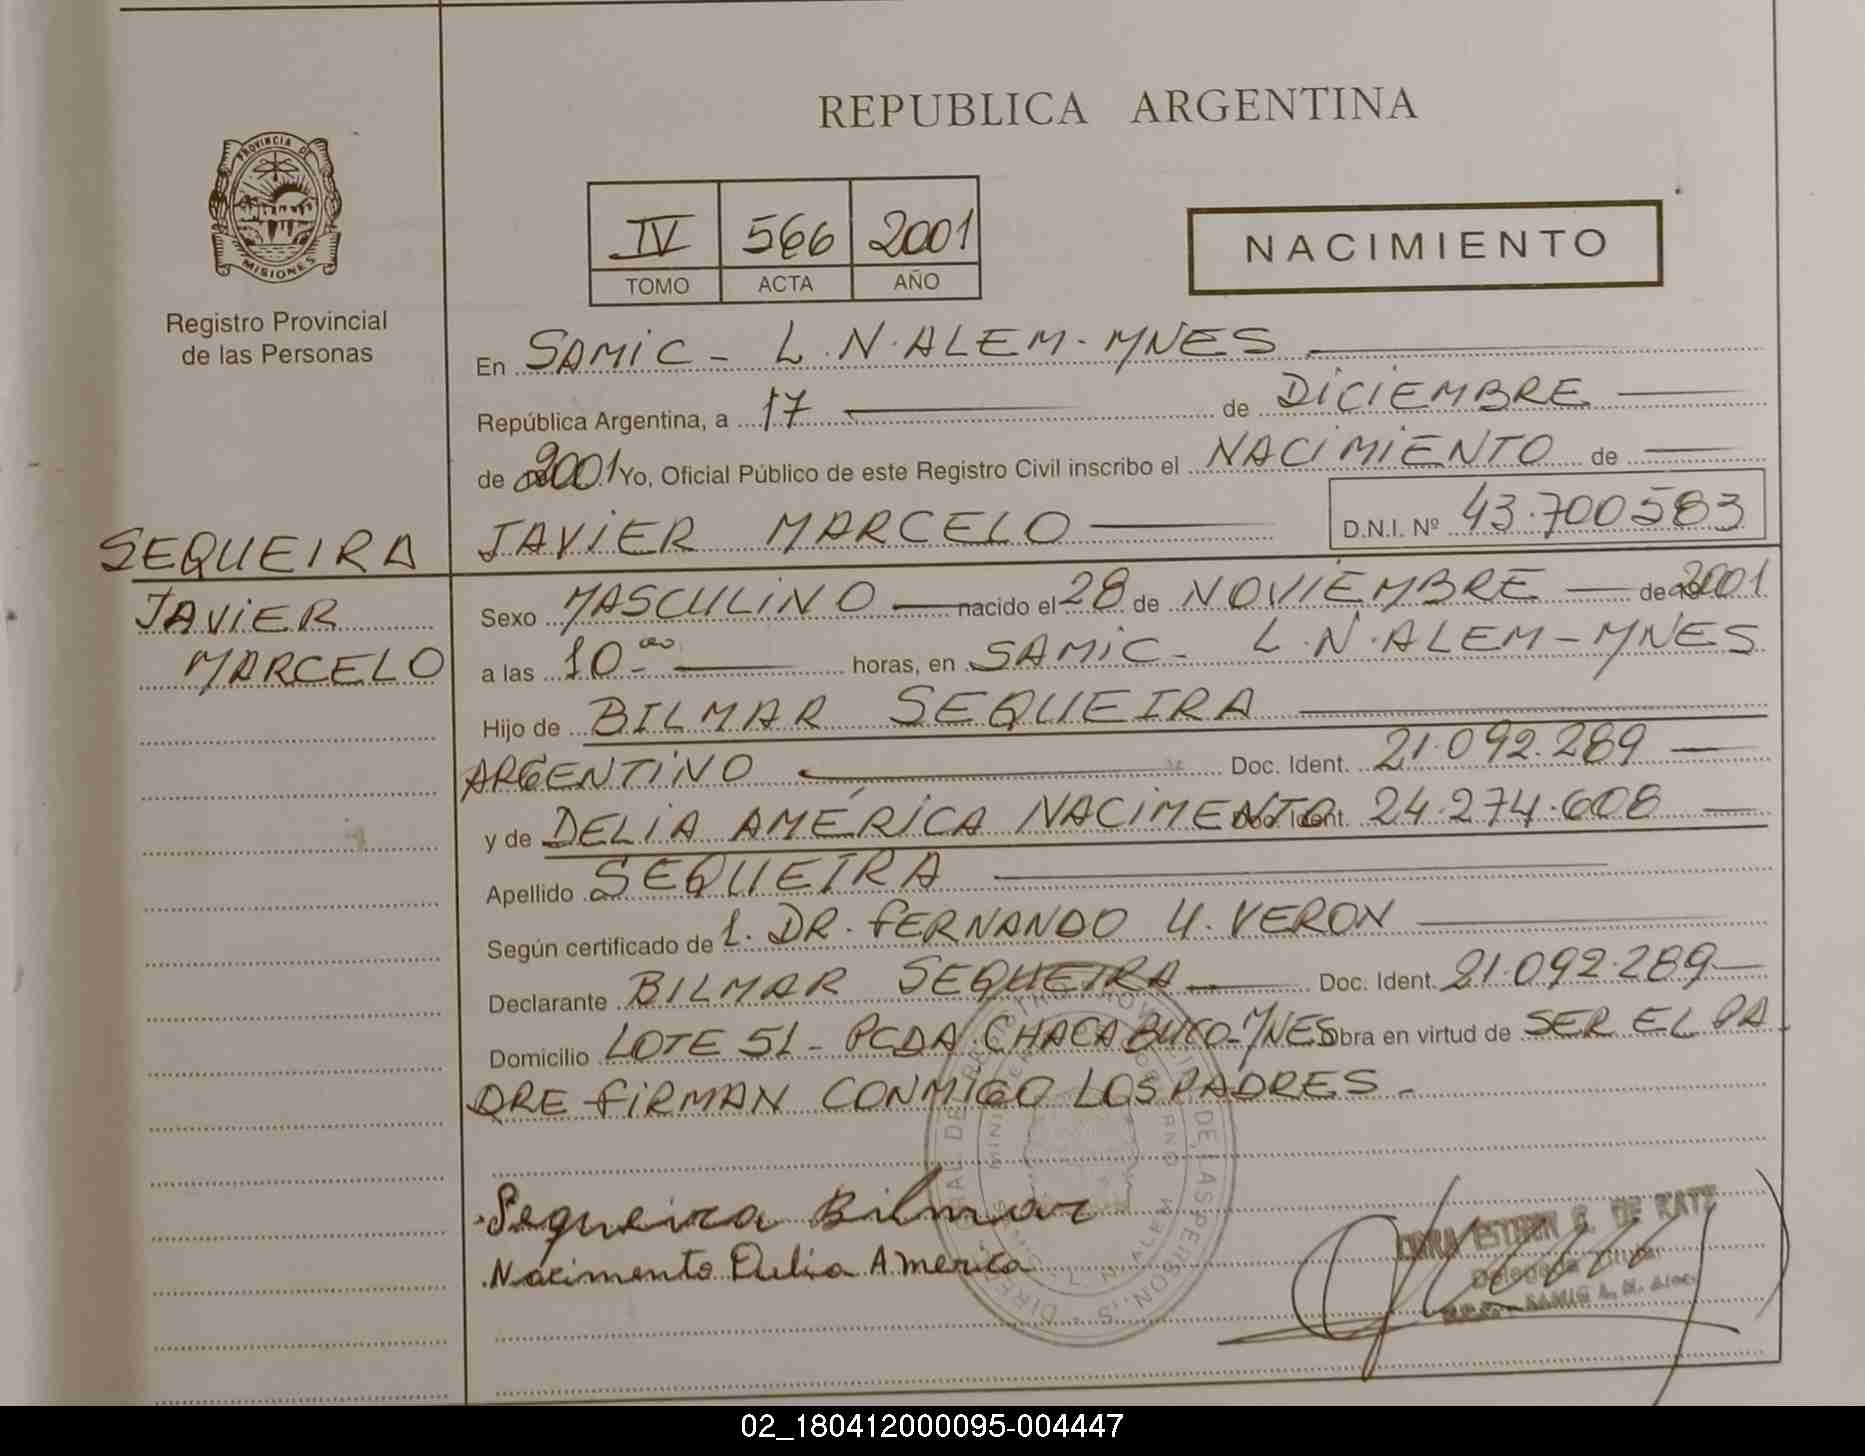 REPUBLICA ARGENTINA
PROVINCIA DE
MISIONES
Registro Provincial
de las Personas
IV 566 2001
TOMO ACTA AÑO
NACIMIENTO
En SAMIC - L.N.ALEM-MNES
República Argentina, a 17 de DICIEMBRE
de 2001 Yo, Oficial Público de este Registro Civil inscribo el NACIMIENTO de
SEQUEIRA
JAVIER MARCELO D.N.I. Nº 43.700583
JAVIER
MARCELO
Sexo MASCULINO nacido el 28 de NOVIEMBRE de 2001
a las 10.00 horas, en SAMIC - L.N.ALEM-MNES
Hijo de BILMAR SEQUEIRA
ARGENTINO Doc. Ident. 21.092.289
y de DELIA AMÉRICA NACIMENTO Doc. Ident. 24.274.608
Apellido SEQUEIRA
Según certificado de 1. DR. FERNANDO U. VERON
Declarante BILMAR SEQUEIRA Doc. Ident. 21.092.289
Domicilio LOTE 51 - PCDA. CHACABUCO-MNES Obra en virtud de SER EL PA
DRE FIRMAN CONMIGO LOS PADRES -
Sequeira Bilmar
Nacimento Delia America
ESTHER DE KATZ
Delegada Titular
SAMIC L. N. Alem
02_180412000095-004447